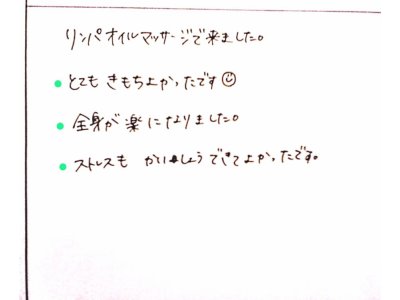 リンパオイルマッサージで来ました。
とても きもちよかったです☺
全身が楽になりました。
ストレスも かいしょうできてよかったです。